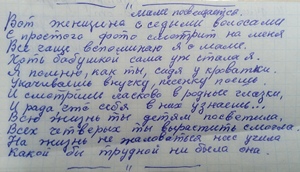 Маме посвящается.
Вот женщина с седыми волосами
С простого фото смотрит на меня
Всё чаще вспоминаю я о маме,
Хоть бабушкой сама уж стала я.
Я помню, как ты, сидя у кроватки
Укачивала внучку, песенку поёшь
И смотришь ласково в родные глазки,
И рада, что себя в них узнаёшь...
Всю жизнь ты детям посвятила,
Всех четверых ты вырастить смогла.
На жизнь не жаловаться нас учила
Какой бы трудной ни была она.